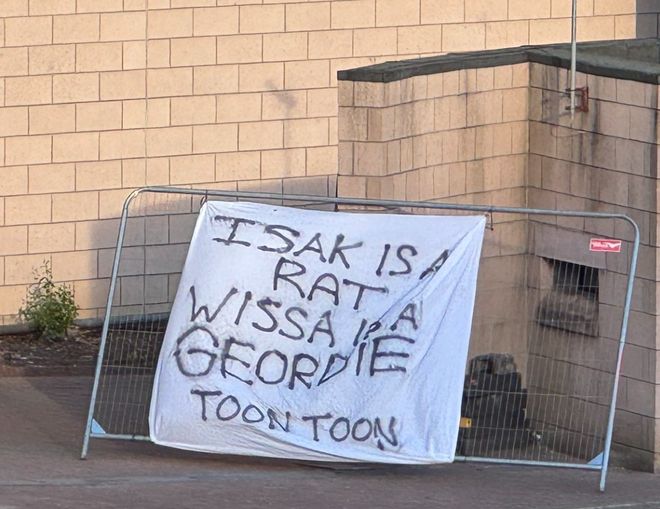 ISAK IS A
RAT
WISSA IS A
GEORDIE
TOON TOON